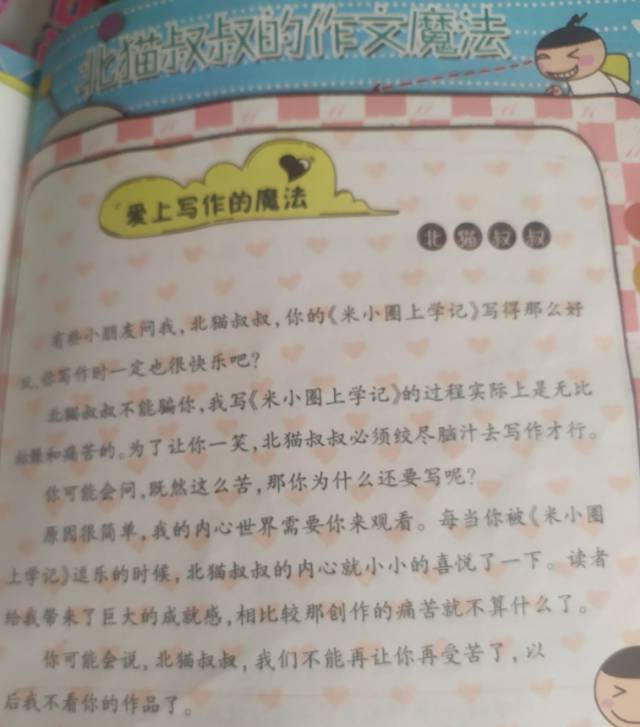 北猫叔叔的作文魔法
爱上写作的魔法
北猫叔叔
有些小朋友问我,北猫叔叔,你的《米小圈上学记》写得那么好
玩,你写作时一定也很快乐吧?
北猫叔叔不能骗你,我写《米小圈上学记》的过程实际上是无比
和痛苦的。为了让你一笑,北猫叔叔必须绞尽脑汁去写作才行。
你可能会问,既然这么苦,那你为什么还要写呢?
原因很简单,我的内心世界需要你来观看。每当你被《米小圈
上学记》逗乐的时候,北猫叔叔的内心就小小的喜悦了一下。读者
给我带来了巨大的成就感,相比较那创作的痛苦就不算什么了。
你可能会说,北猫叔叔,我们不能再让你再受苦了,以
后我不看你的作品了。